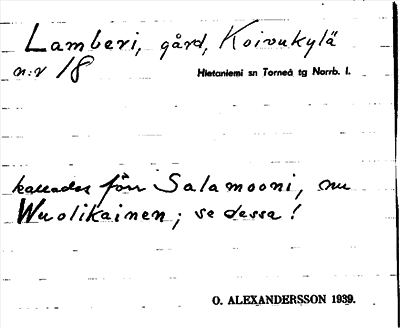 Lamberi, gård, Koivukylä
n:r 18 Hietaniemi sn Torneå tg Norrb. l.
kallades förr Salamooni, nu
Wuolikainen; se dessa!
O. ALEXANDERSSON 1939.